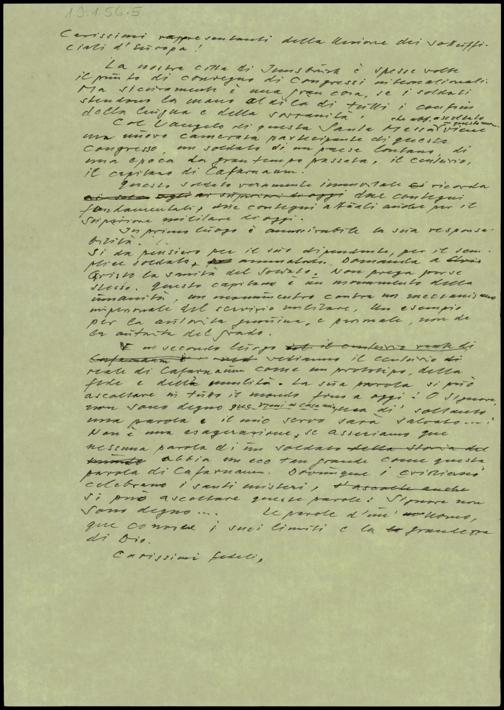 19.1.56.5
Carissimi rappresentanti della Unione dei sottuffi-
ciali d'Europa!
La nostra città di Innsbruck è spesse volte
il punto di convegno di Congressi internazionali.
Ma sicuramente è una gran cosa, se i soldati
stendono la mano al di là di tutti i confini
della lingua e della sovranità.
Col Vangelo di questa Santa Messa viene
una nuovo camerata participante di questo
Congresso, un soldato di un paese lontano, di
una epoca da gran tempo passata, il centurio,
il capitano di Cafarnaum.
Questo soldato veramente immortale ci ricorda
due consegni
fondamentali, due consegni attuali anche per il
superiore militare di oggi.
In primo luogo è ammirabile la sua responsa-
bilità...
Si dà pensiero per il suo dipendente, per il sem-
plice soldato, ammalato. Domanda a
Cristo la sanità del soldato. Non prega per se
stesso. Questo capitano è un monumento della
umanità, un monumentro contra un mecanismo
impersonale del servizio militare. Un esempio
per la autorità genuina, e personale, non de
la autorità del grado.
E in secondo luogo
vediamo il centurio di
reale di Cafarnaum come un prototipo, della
fede e della umiltà. La sua parola si può
ascoltare in tutto il mondo fino a oggi: O Signore,
non sono degno que di' soltanto
una parola e il mio servo sarà salvato...!
Non è una esagerazione, se asseriamo que
nessuna parola di un soldato della storia del
mondo abbia un eco tan grande come questa
parola di Cafarnaum. Dovunque i cristiani
celebrano i santi misteri,
si può ascoltare queste parole: Signore non
sono degno.... Le parole d'un uomo,
que conosce i suoi limiti e la grandezza
di Dio.
Carissimi fedeli,